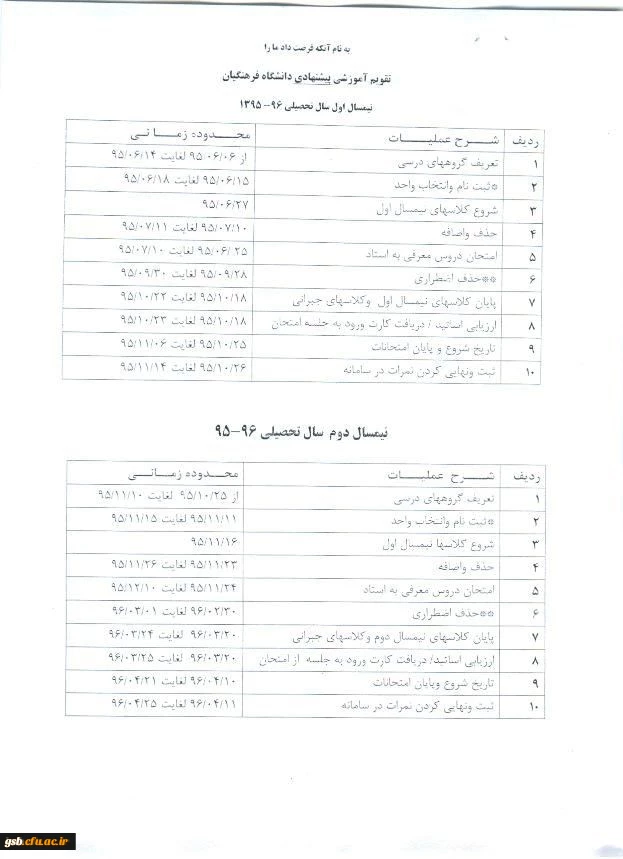 به نام آنکه فرصت داد ما را
تقویم آموزشی پیشنهادی دانشگاه فرهنگیان
نیمسال اول سال تحصیلی ۹۶-۱۳۹۵
ردیف شرح عملیات محدوده زمانی
۱ تعریف گروههای درسی از ۹۵/۰۶/۰۶ لغایت ۹۵/۰۶/۱۴
۲ *ثبت نام وانتخاب واحد ۹۵/۰۶/۱۵ لغایت ۹۵/۰۶/۱۸
۳ شروع کلاسهای نیمسال اول ۹۵/۰۶/۲۷
۴ حذف واضافه ۹۵/۰۷/۱۰ لغایت ۹۵/۰۷/۱۱
۵ امتحان دروس معرفی به استاد ۹۵/۰۶/۲۵ لغایت ۹۵/۰۷/۱۰
۶ **حذف اضطراری ۹۵/۰۹/۲۸ لغایت ۹۵/۰۹/۳۰
۷ پایان کلاسهای نیمسال اول وکلاسهای جبرانی ۹۵/۱۰/۱۸ لغایت ۹۵/۱۰/۲۲
۸ ارزیابی اساتید / دریافت کارت ورود به جلسه امتحان ۹۵/۱۰/۱۸ لغایت ۹۵/۱۰/۲۳
۹ تاریخ شروع و پایان امتحانات ۹۵/۱۰/۲۵ لغایت ۹۵/۱۱/۰۶
۱۰ ثبت ونهایی کردن نمرات در سامانه ۹۵/۱۰/۲۶ لغایت ۹۵/۱۱/۱۴
نیمسال دوم سال تحصیلی ۹۶-۹۵
ردیف شرح عملیات محدوده زمانی
۱ تعریف گروههای درسی از ۹۵/۱۰/۲۵ لغایت ۹۵/۱۱/۱۰
۲ *ثبت نام وانتخاب واحد ۹۵/۱۱/۱۱ لغایت ۹۵/۱۱/۱۵
۳ شروع کلاسها نیمسال اول ۹۵/۱۱/۱۶
۴ حذف واضافه ۹۵/۱۱/۲۳ لغایت ۹۵/۱۱/۲۶
۵ امتحان دروس معرفی به استاد ۹۵/۱۱/۲۴ لغایت ۹۵/۱۲/۱۰
۶ **حذف اضطراری ۹۶/۰۲/۳۰ لغایت ۹۶/۰۳/۰۱
۷ پایان کلاسهای نیمسال دوم وکلاسهای جبرانی ۹۶/۰۳/۲۰ لغایت ۹۶/۰۳/۲۴
۸ ارزیابی اساتید/ دریافت کارت ورود به جلسه از امتحان ۹۶/۰۳/۲۰ لغایت ۹۶/۰۳/۲۵
۹ تاریخ شروع وپایان امتحانات ۹۶/۰۴/۱۰ لغایت ۹۶/۰۴/۲۱
۱۰ ثبت ونهایی کردن نمرات در سامانه ۹۶/۰۴/۱۱ لغایت ۹۶/۰۴/۲۵
gsb.cfu.ac.ir